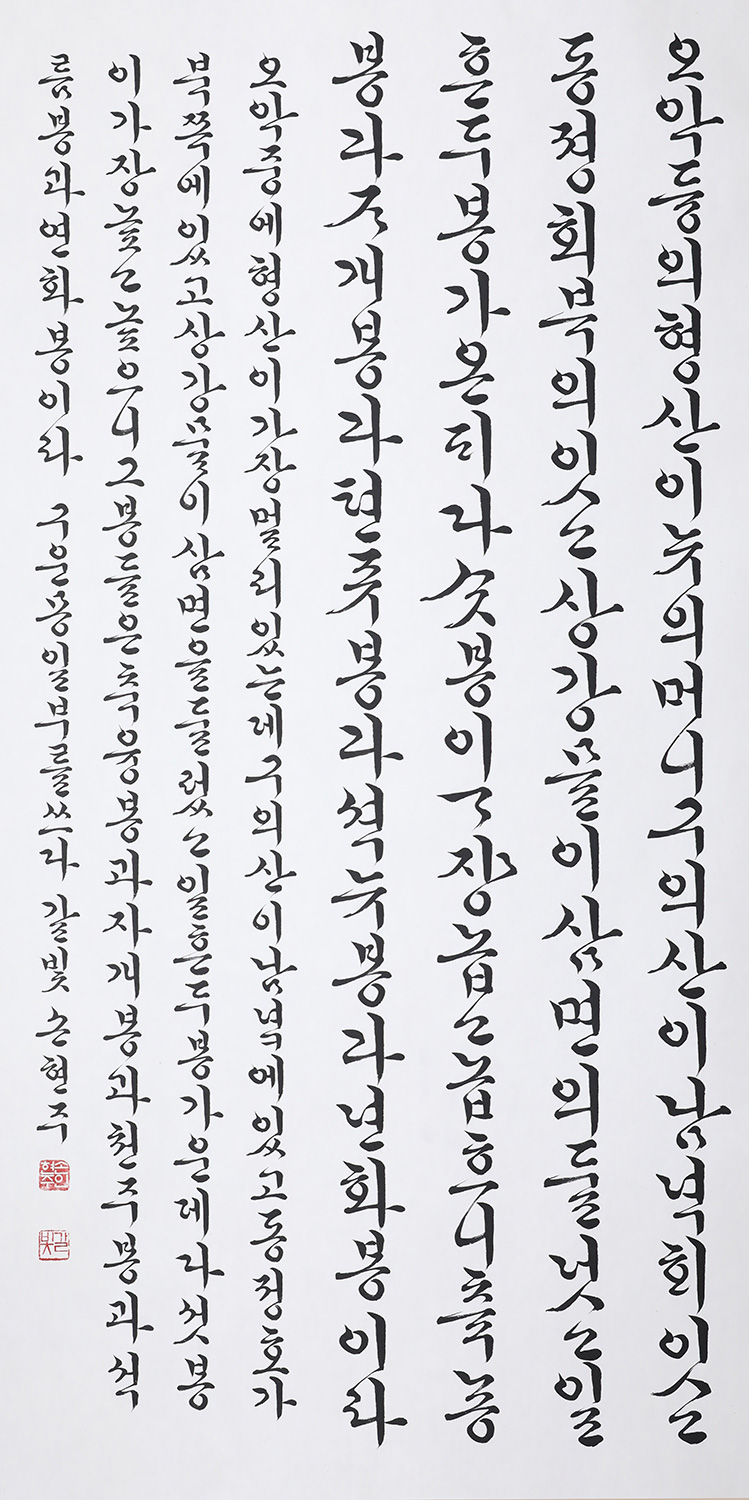 오악듕의형산이뉴의머니구의산이남녁희잇고
동졍회북의잇고상강물이삼면의둘넛고일
흔두봉가온ᄃᆡ다ᄉᆞᆺ봉이ᄀᆞ쟝놉고놉흐니츅늉
봉과ᄌᆞ개봉과텬쥬봉과셕뉴봉과년화봉이라
오악중에형산이가장멀리있는데구의산이남녘에있고동정호가
북쪽에있고상강물이삼면을둘렀고일흔두봉가운데다섯봉
이가장높고높으니그봉들은축융봉과자개봉과천주봉과석
름봉과연화봉이라 구운몽일부를쓰다 갈빛 손현주
손현주
갈빛